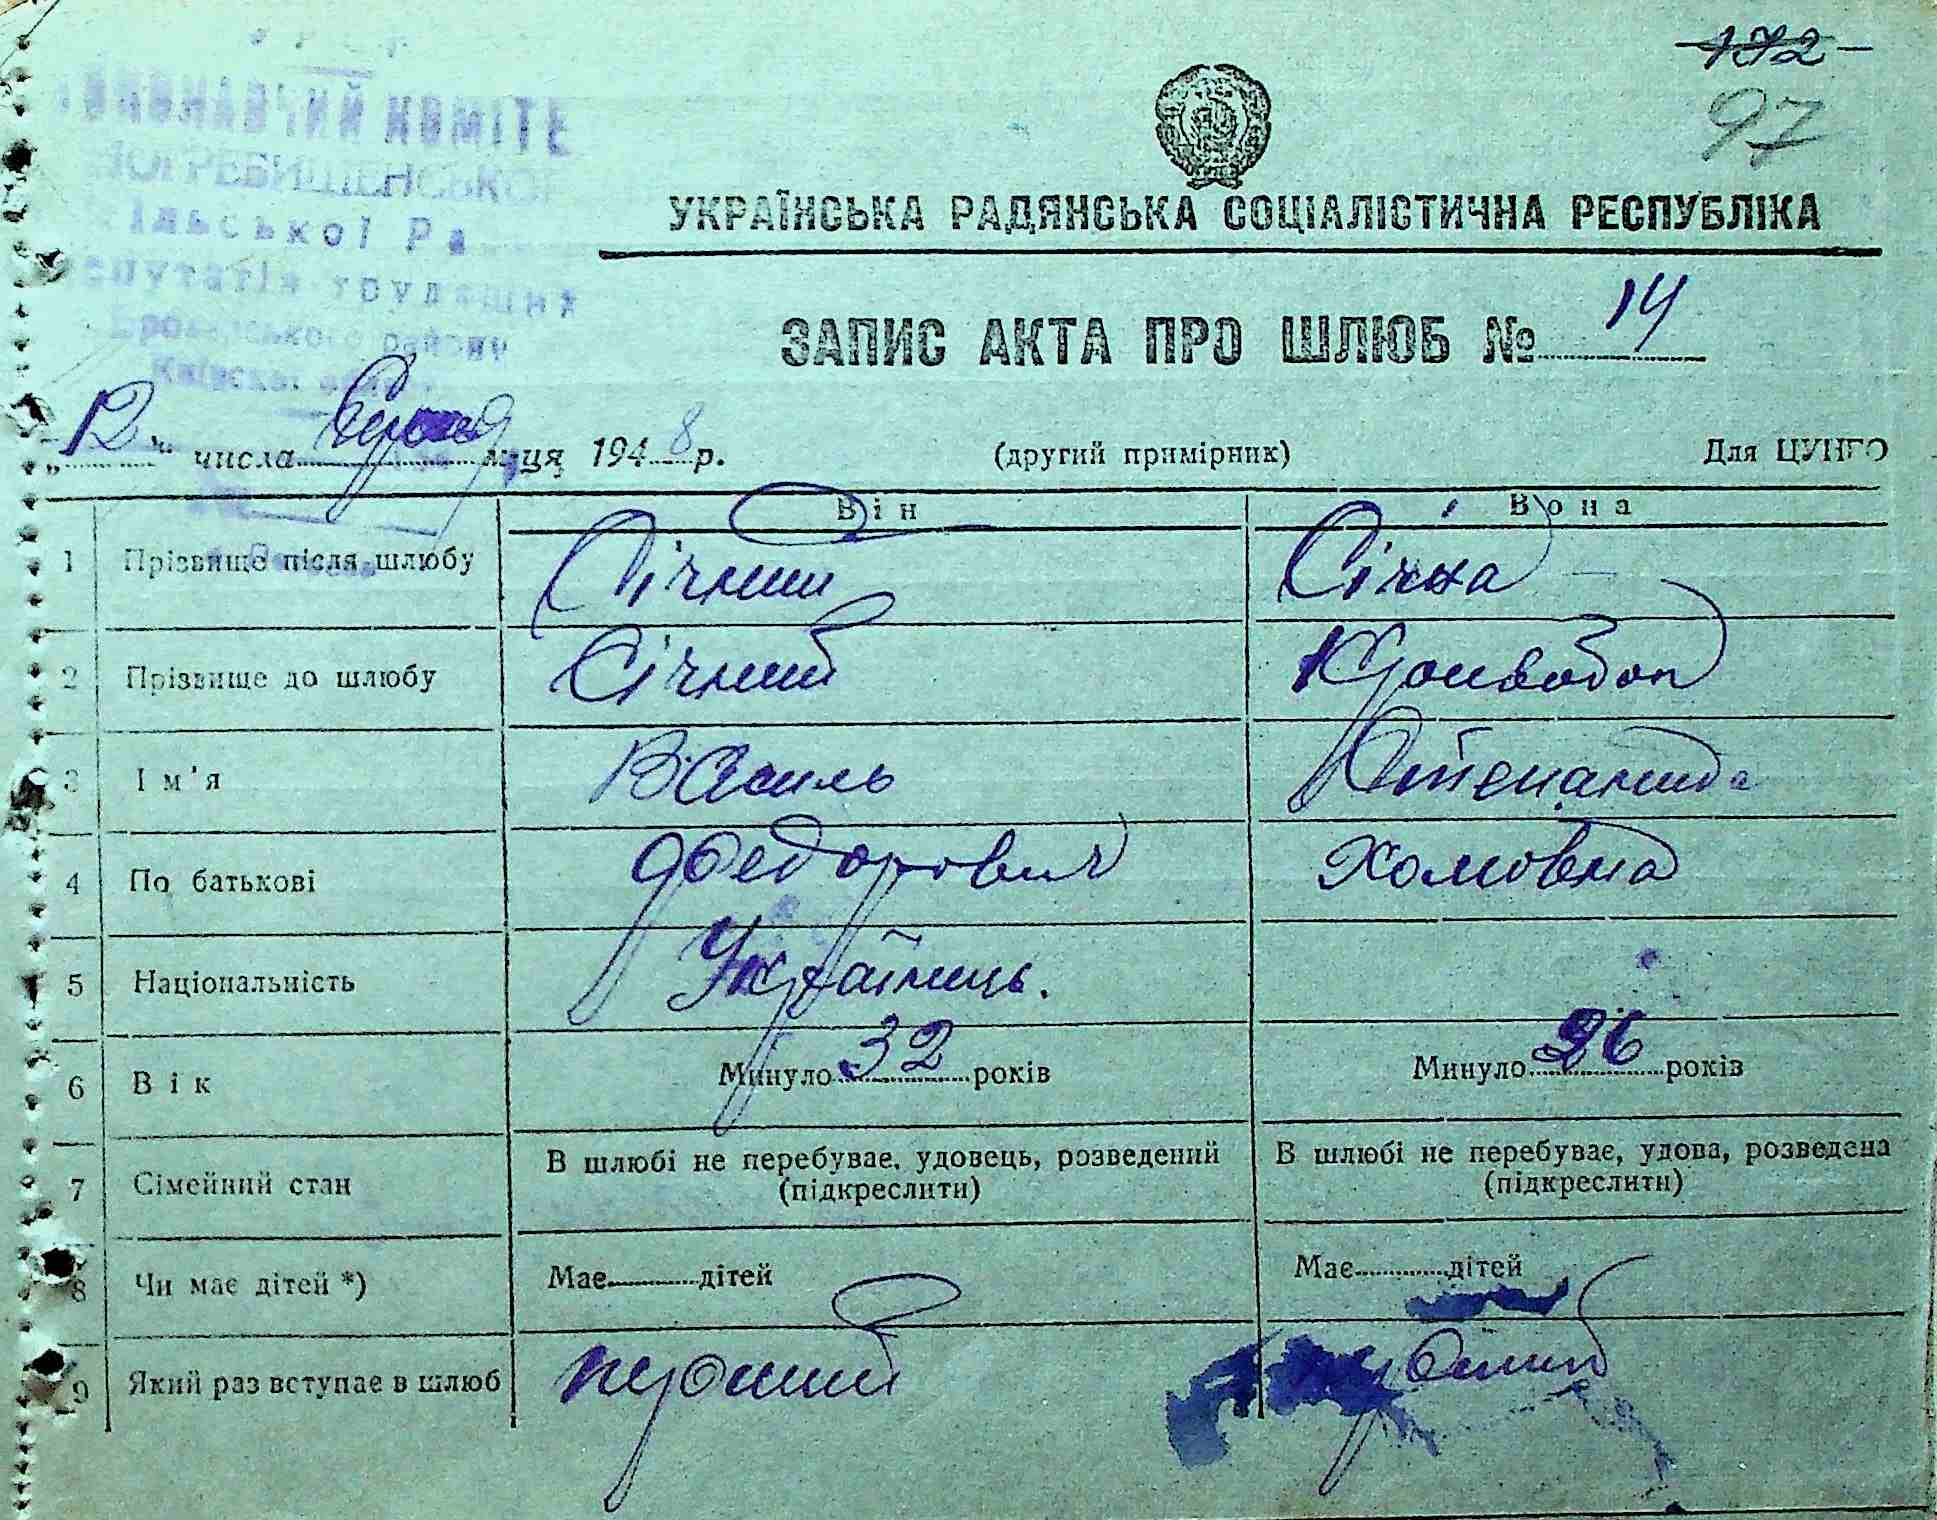 172
97
ПОГРЕБИЩЕНСЬКОЇ
УКРАЇНСЬКА РАДЯНСЬКА СОЦІАЛІСТИЧНА РЕСПУБЛІКА
ЗАПИС АКТА ПРО ШЛЮБ № 14
„12“ числа м-ця 1948 р. (другий примірник) Для ЦУНГО
Він Вона
1 Прізвище після шлюбу Січний Січна
2 Прізвище до шлюбу Січний
3 Ім'я Василь Степанида
4 По батькові Федорович Хомовна
5 Національність Українець.
6 Вік Минуло 32 років Минуло 26 років
7 Сімейний стан В шлюбі не перебуває, удовець, розведений (підкреслити) В шлюбі не перебуває, удова, розведена (підкреслити)
8 Чи має дітей *) Має дітей Має дітей
9 Який раз вступає в шлюб